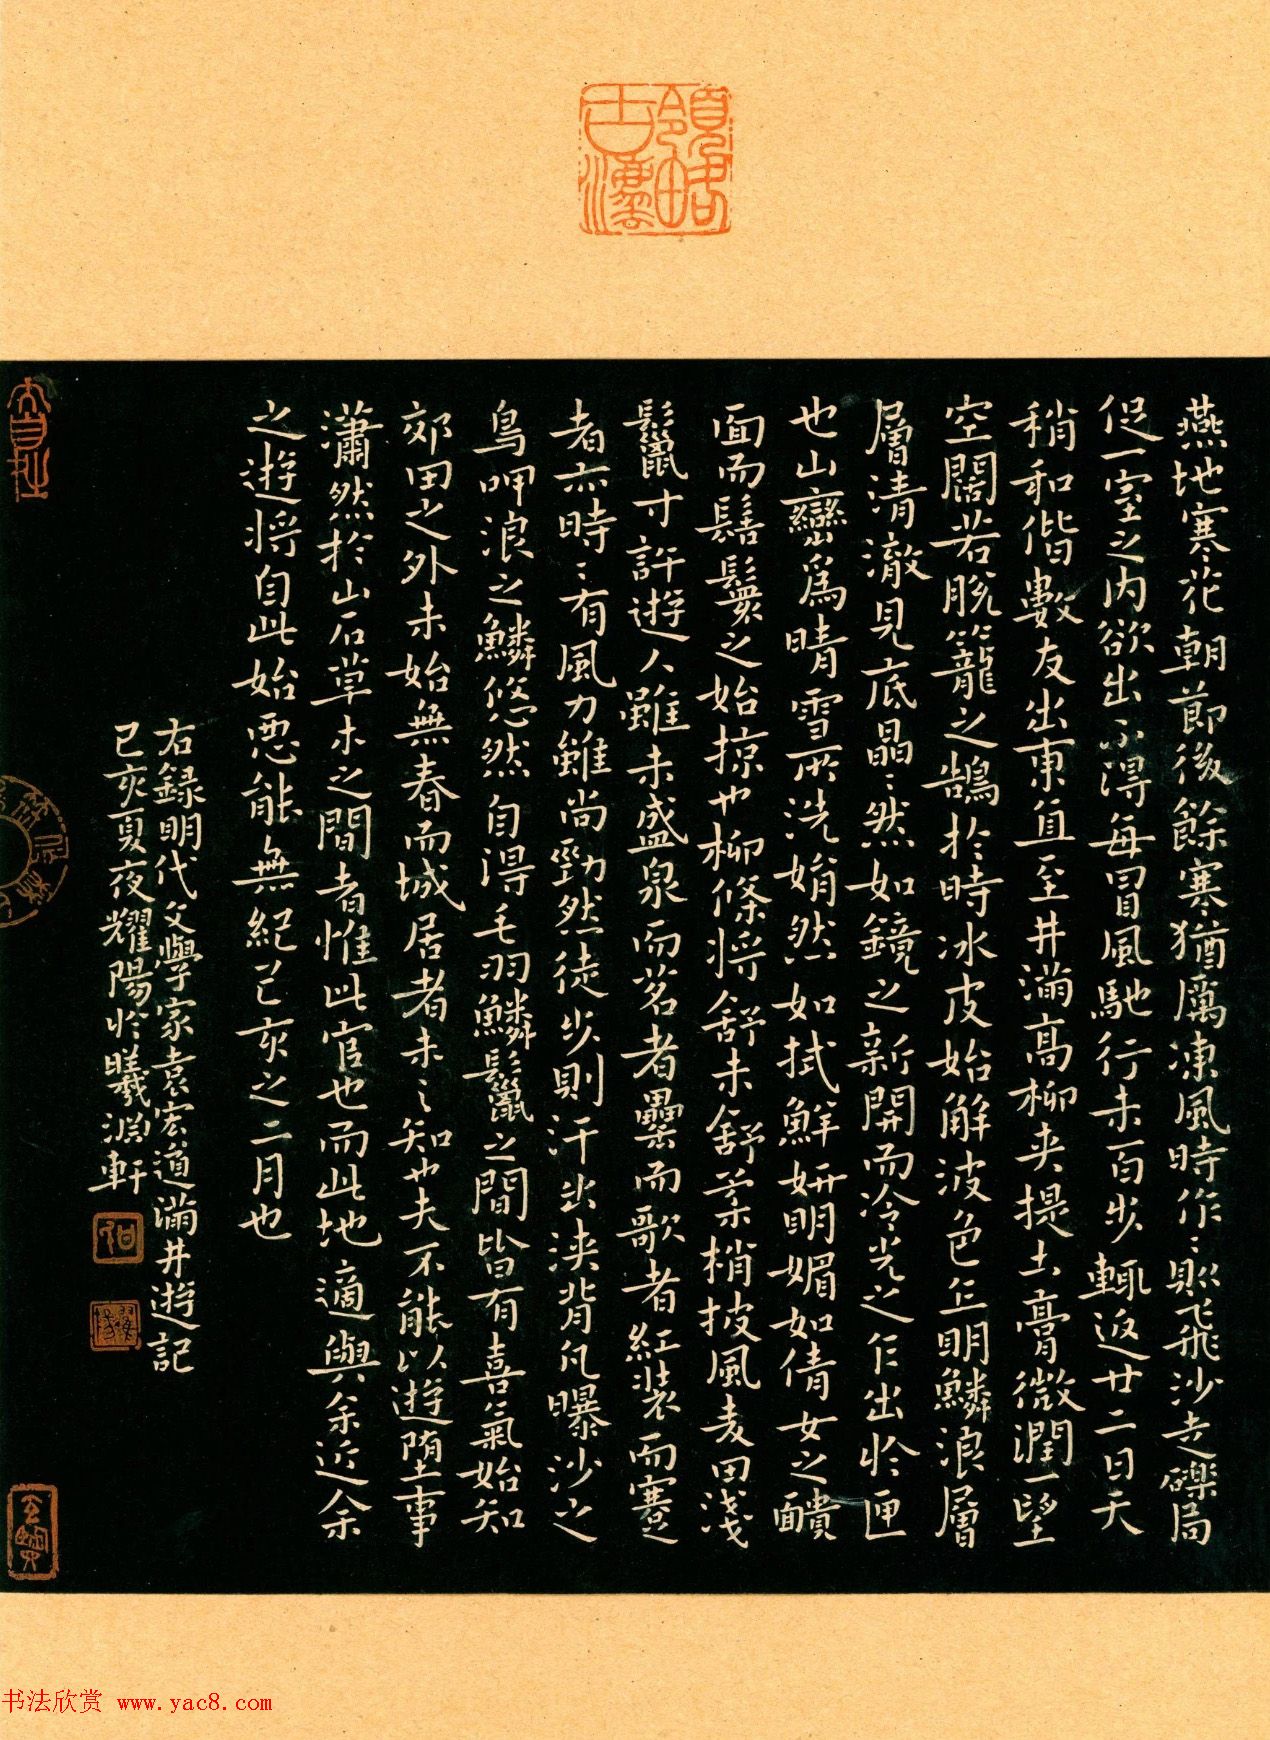 領略古法
燕地寒花朝節後餘寒猶厲凍風時作〻則飛沙走礫局
促一室之內欲出不得每冒風馳行未百步輒返廿二日天
稍和偕數友出東直至井滿高柳夾提土膏微潤一望
空闊若脫籠之鵠於時冰皮始解波色乍明鱗浪層
層清澈見底晶〻然如鏡之新開而冷光之乍出於匣
也山巒為晴雪所洗娟然如拭鮮妍明媚如倩女之靧
面而髻鬟之始掠也柳條將舒未舒柔梢披風麦田淺
鬣寸許遊人雖未盛泉而茗者罍而歌者紅裝而蹇
者亦時〻有風力雖尚勁然徒步則汗出浹背凡曝沙之
鳥呷浪之鱗悠然自得毛羽鱗鬣之間皆有喜氣始知
郊田之外未始無春而城居者未之知也夫不能以遊墮事
瀟然於山石草木之間者惟此官也而此地適與余近余
之遊將自此始惡能無紀己亥之二月也
右錄明代文學家袁宏道滿井遊記
己亥夏夜耀陽於曦渊軒
书法欣赏 www.yac8.com